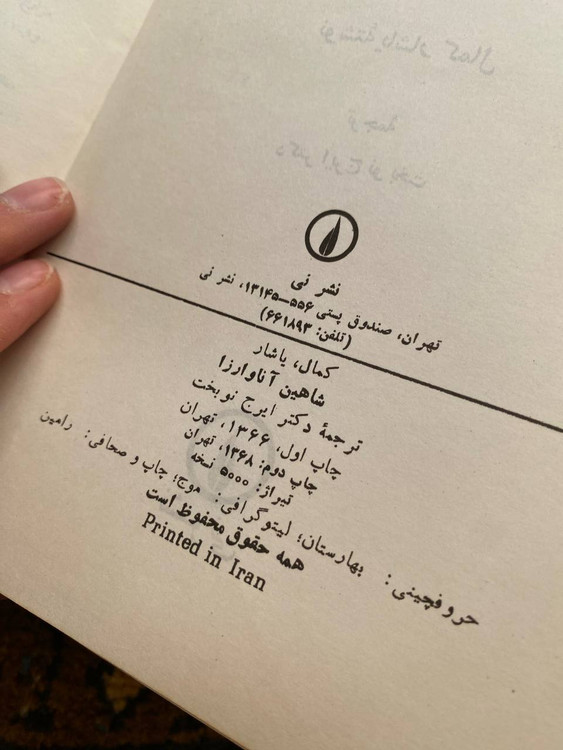 نشر نی
تهران، صندوق پستی ۵۵۶—۱۳۱۴۵، نشر نی
(تلفن: ۶۶۱۸۹۳)
کمال، یاشار
شاهین آناوارزا
ترجمهٔ دکتر ایرج نوبخت
چاپ اول، ۱۳۶۶، تهران
چاپ دوم: ۱۳۶۸، تهران
تیراژ: ۵۰۰۰ نسخه
حروفچینی: بهارستان؛ لیتوگرافی: موج؛ چاپ و صحافی: رامین
همه حقوق محفوظ است
Printed in Iran